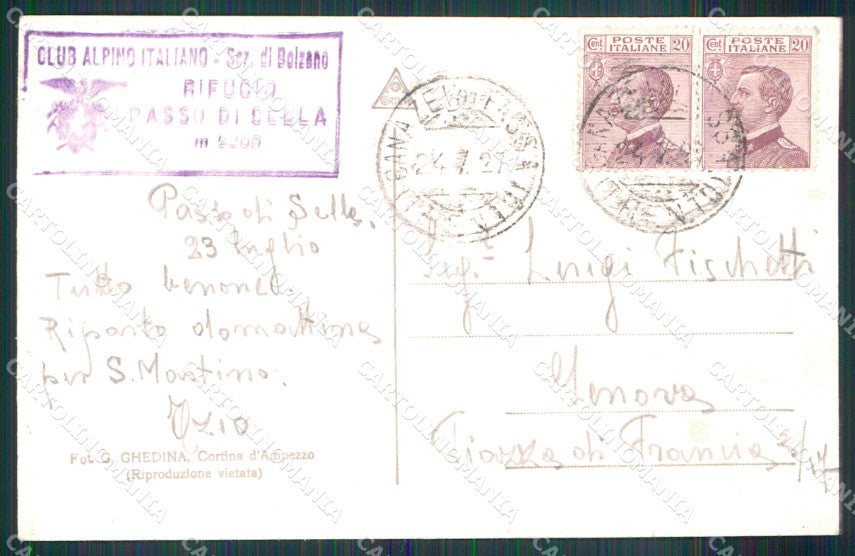 CLUB ALPINO ITALIANO - Sez. di Bolzano
RIFUGIO
PASSO DI SELLA
m 2200
POSTE ITALIANE
Cent 20
POSTE ITALIANE
Cent 20
24.7.27
Passo di Sella,
23 luglio
Tutto benone.
Riparto domattina
per S. Martino.
Fot. G. GHEDINA, Cortina d'Ampezzo
(Riproduzione vietata)
Luigi Fischetti
Genova
Piazza di Francia
CARTOLINOMANIA